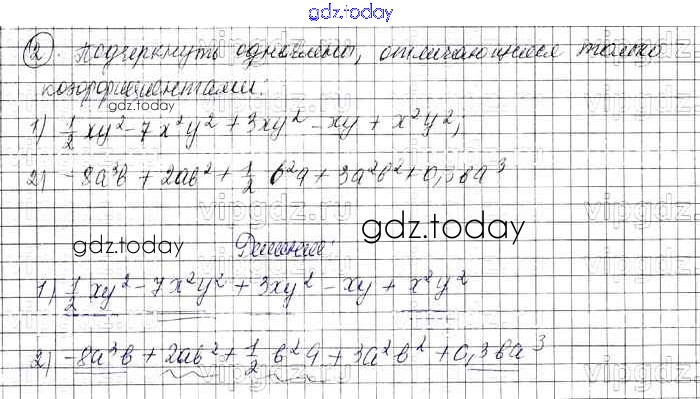 gdz.today
2. Подчеркнуть одночлены, отличающиеся только
коэффициентами:
gdz.today
1) 1/2 xy² - 7x²y² + 3xy² - xy + x²y²;
vipgdz.ru
2) -8a³b + 2ab² + 1/2 b²a + 3a²b² + 0,3ba³
vipgdz.ru
gdz.today
gdz.today
Решение:
1) 1/2 xy² - 7x²y² + 3xy² - xy + x²y²
2) -8a³b + 2ab² + 1/2 b²a + 3a²b² + 0,3ba³